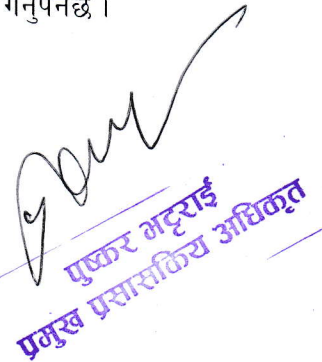 गर्नुपर्नेछ ।
पुष्कर भट्टराई
प्रमुख प्रसासकिय अधिकृत